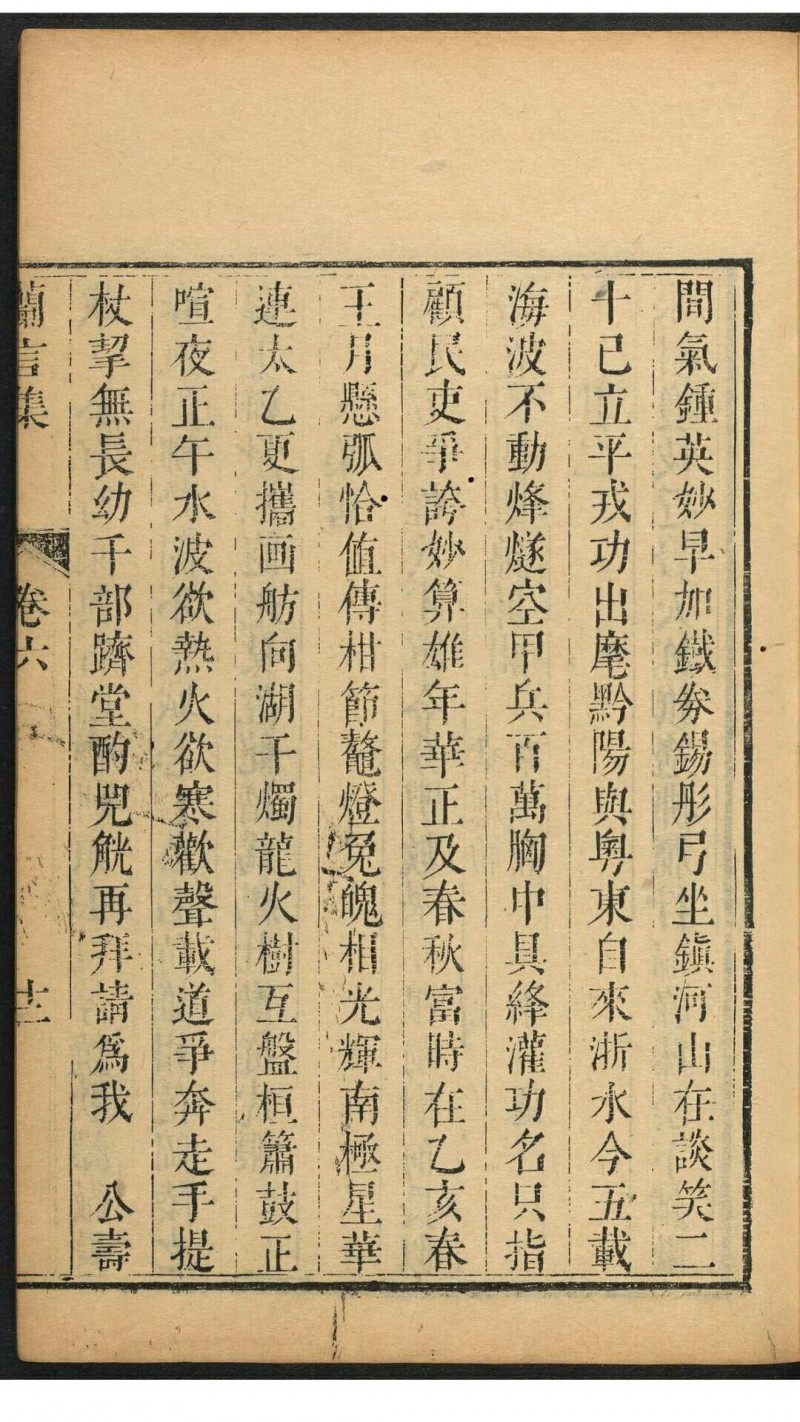 間氣鍾英妙早加鐵券錫彤弓坐鎮河山在談笑二
十已立平戎功出麾黔陽與粵東自來浙水今五載
海波不動烽燧空甲兵百萬胸中具絳灌功名只指
顧民吏爭誇妙算雄年華正及春秋富時在乙亥春
王月懸弧恰值傳柑節鼇燈兔魄相光輝南極星華
連太乙更攜画舫向湖干燭龍火樹互盤桓簫鼓正
喧夜正午水波欲熱火欲寒歡聲載道爭奔走手提
杖挈無長幼千部躋堂酌兕觥再拜請爲我　公壽
蘭言集　卷六　十二